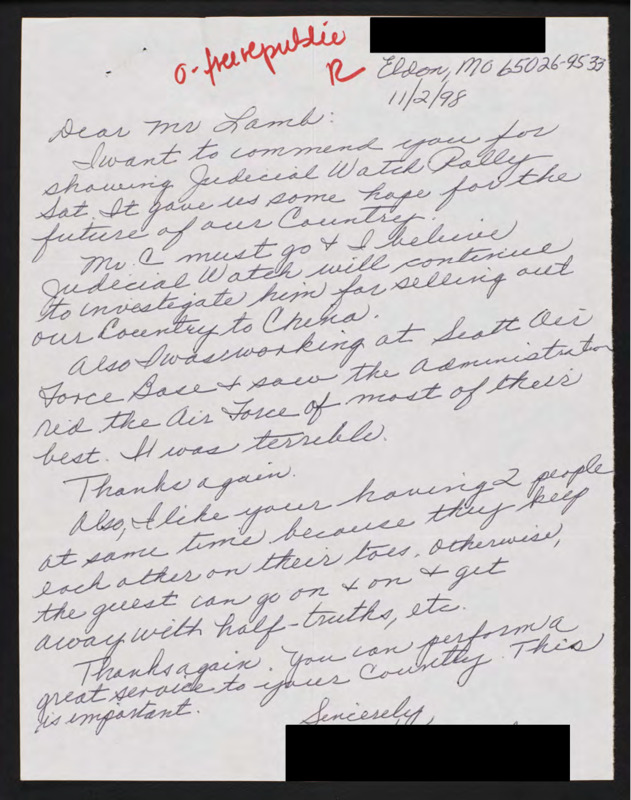 o-freerepublic
R
Eldon, MO 65026-9533
11/2/98
Dear Mr Lamb:
I want to commend you for
showing Judicial Watch Rally
Sat. It gave us some hope for the
future of our Country.
Mr. C must go & I believe
Judicial Watch will continue
to investigate him for selling out
our Country to China.
Also I was working at Scott Air
Force Base & saw the administration
rid the Air Force of most of their
best. It was terrible.
Thanks again.
Also, I like your having 2 people
at same time because they keep
each other on their toes. Otherwise,
the guest can go on & on & get
away with half-truths, etc.
Thanks again. You can perform a
great service to your Country. This
is important.
Sincerely,